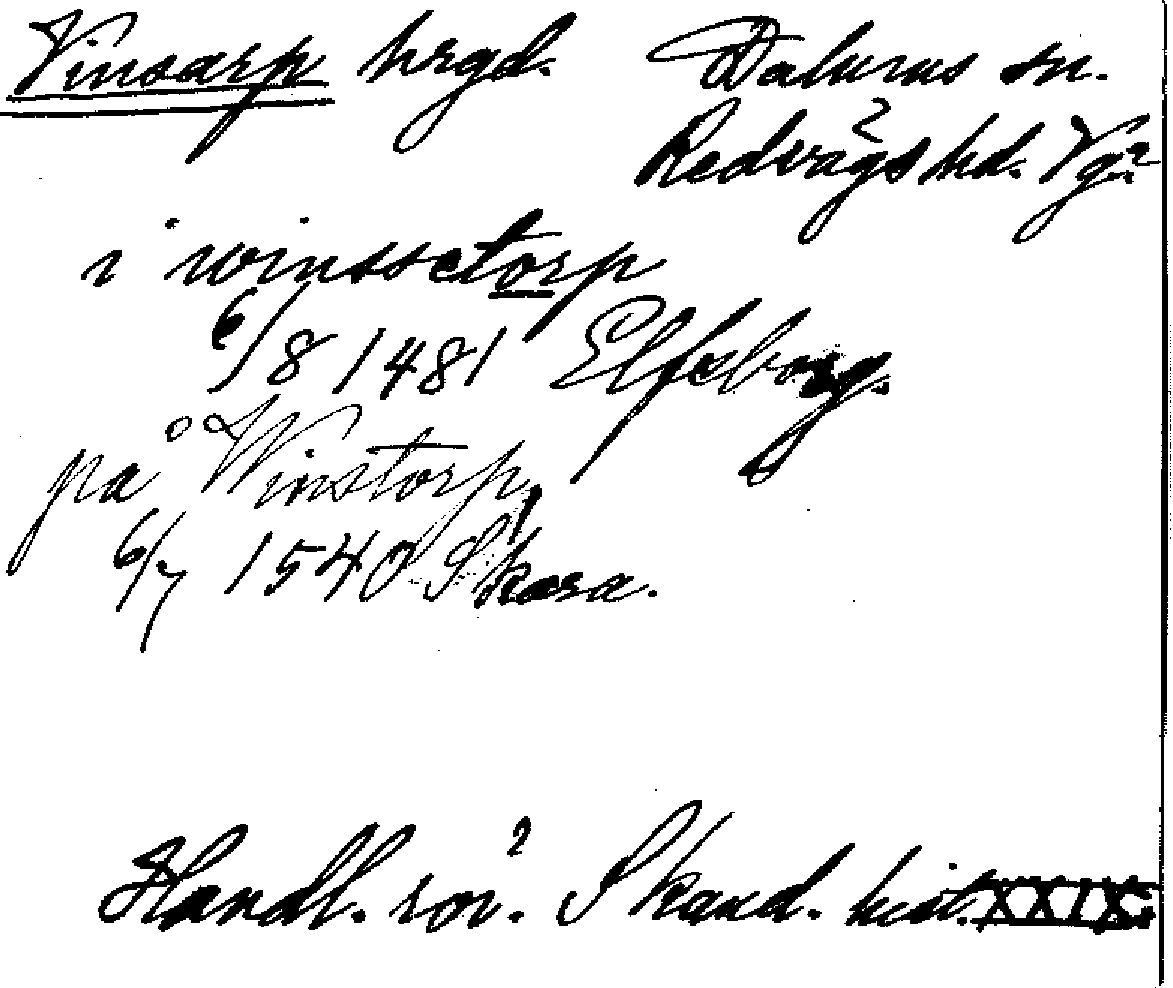 Vinsarp hrgd. Dalums sn.
Redvägs hd. Vg.
i winssetorp
6/8 1481 Elfsborg.
på Winstorp,
6/7 1540 Skara.
Handl. rör. Skand. hist. XXIX: